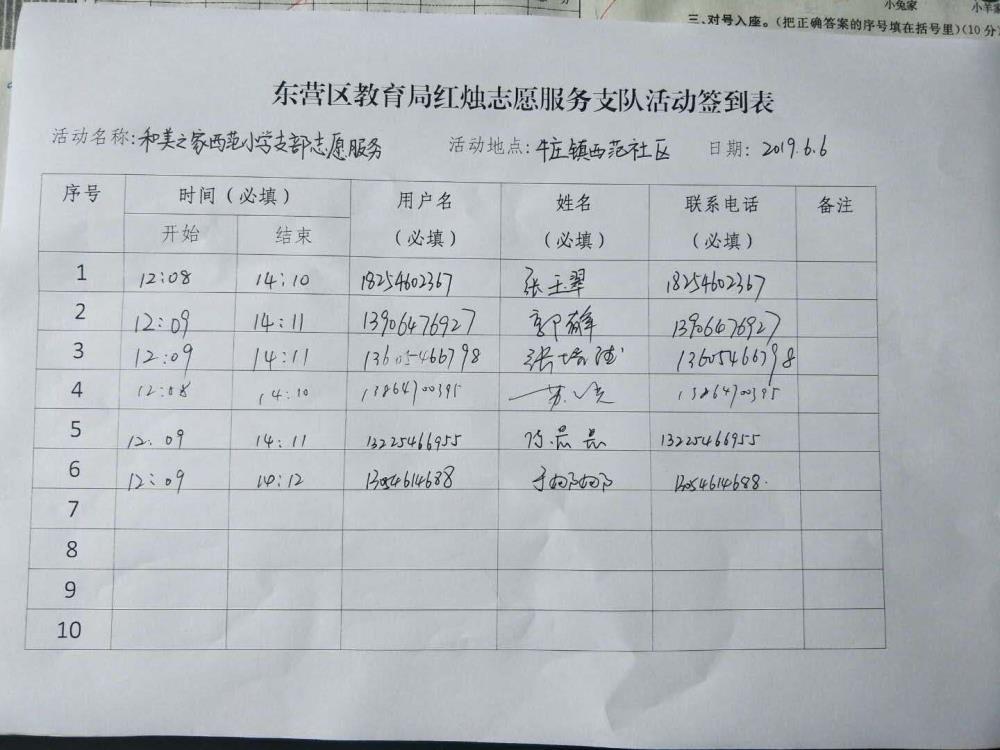 小兔家
三、对号入座。(把正确答案的序号填在括号里)(10分)
东营区教育局红烛志愿服务支队活动签到表
活动名称:和美之家西范小学支部志愿服务 活动地点:牛庄镇西范社区 日期: 2019.6.6
序号 时间(必填) 用户名(必填) 姓名(必填) 联系电话(必填) 备注
开始 结束
1 12:08 14:10 18254602367 张玉翠 18254602367
2 12:09 14:11 13906476927 郭 13906476927
3 12:09 14:11 13605466798 张 13605466798
4 12:08 14:10 13864700395 13864700395
5 12:09 14:11 13225466955 13225466955
6 12:09 14:12 13054614688 于娜娜 13054614688
7
8
9
10